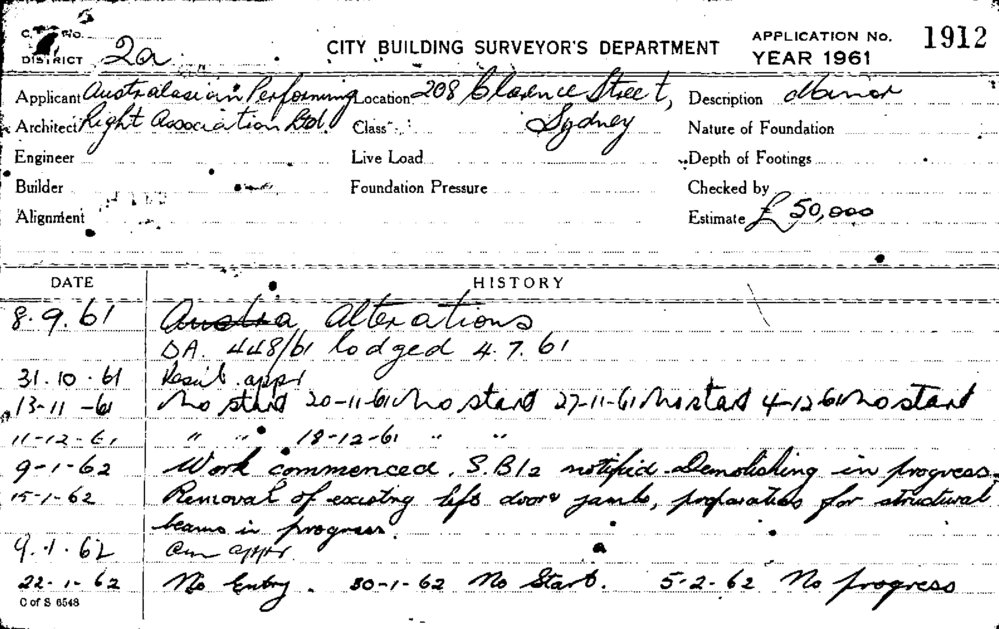 C. No.
DISTRICT 2a
CITY BUILDING SURVEYOR'S DEPARTMENT
APPLICATION No. 1912
YEAR 1961
Applicant Australasian Performing Location 208 Clarence Street, Description Minor
Architect Right Association Ltd. Class Sydney Nature of Foundation
Engineer Live Load Depth of Footings
Builder Foundation Pressure Checked by
Alignment Estimate £ 50,000
DATE HISTORY
8.9.61 Austra Alterations
DA. 448/61 lodged 4.7.61
31.10.61 appr
13-11-61 No start 20-11-61 No start 27-11-61 No start 4-12-61 No start
11-12-61 " " 18-12-61 " "
9-1-62 Work commenced. S.B12 notified. Demolishing in progress.
15-1-62 Removal of existing lift doors jambs, preparation for structural
beams in progress.
9.1.62 appr
22-1-62 No Entry. 30-1-62 No Start. 5-2-62 No progress
C of S 6548